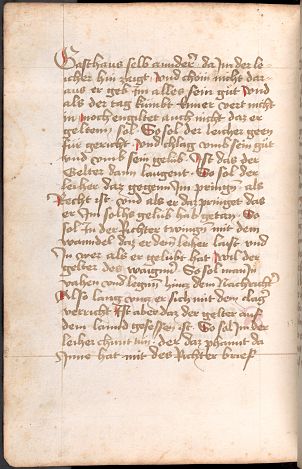 Gasthaus selb ander da Im der le
icher hin zaigt vnd chom nicht dar
aus er geb Im alles sein gut vnd
als der tag kumbt Inner vert nicht
in noch engilter auch nicht daz er
geltem sol So sol der leicher geen
für gericht vnd chlag vmb sein gůt
vnd vmb sein gelub Ist das der
Gelter dann laugent So sol der
leiher daz gegem Im pringen als
Recht ist vnd als er daz pringet das
er Im solhs gelub hab getan So
sol In der Richter twingen mit dem
wanndel daz er den leiher laist vnd
In wer als er gelubt hat wil der
gelter des waigern So sol man In
vahen vnd legen hincz dem Nachricht
Als lang vncz er sich mit dem clag
verricht Ist aber daz der gelter auf
dem lannd gesessen ist So sol In der
leiher chunt tun der daz phannt da
Inne hat mit des Richter brief